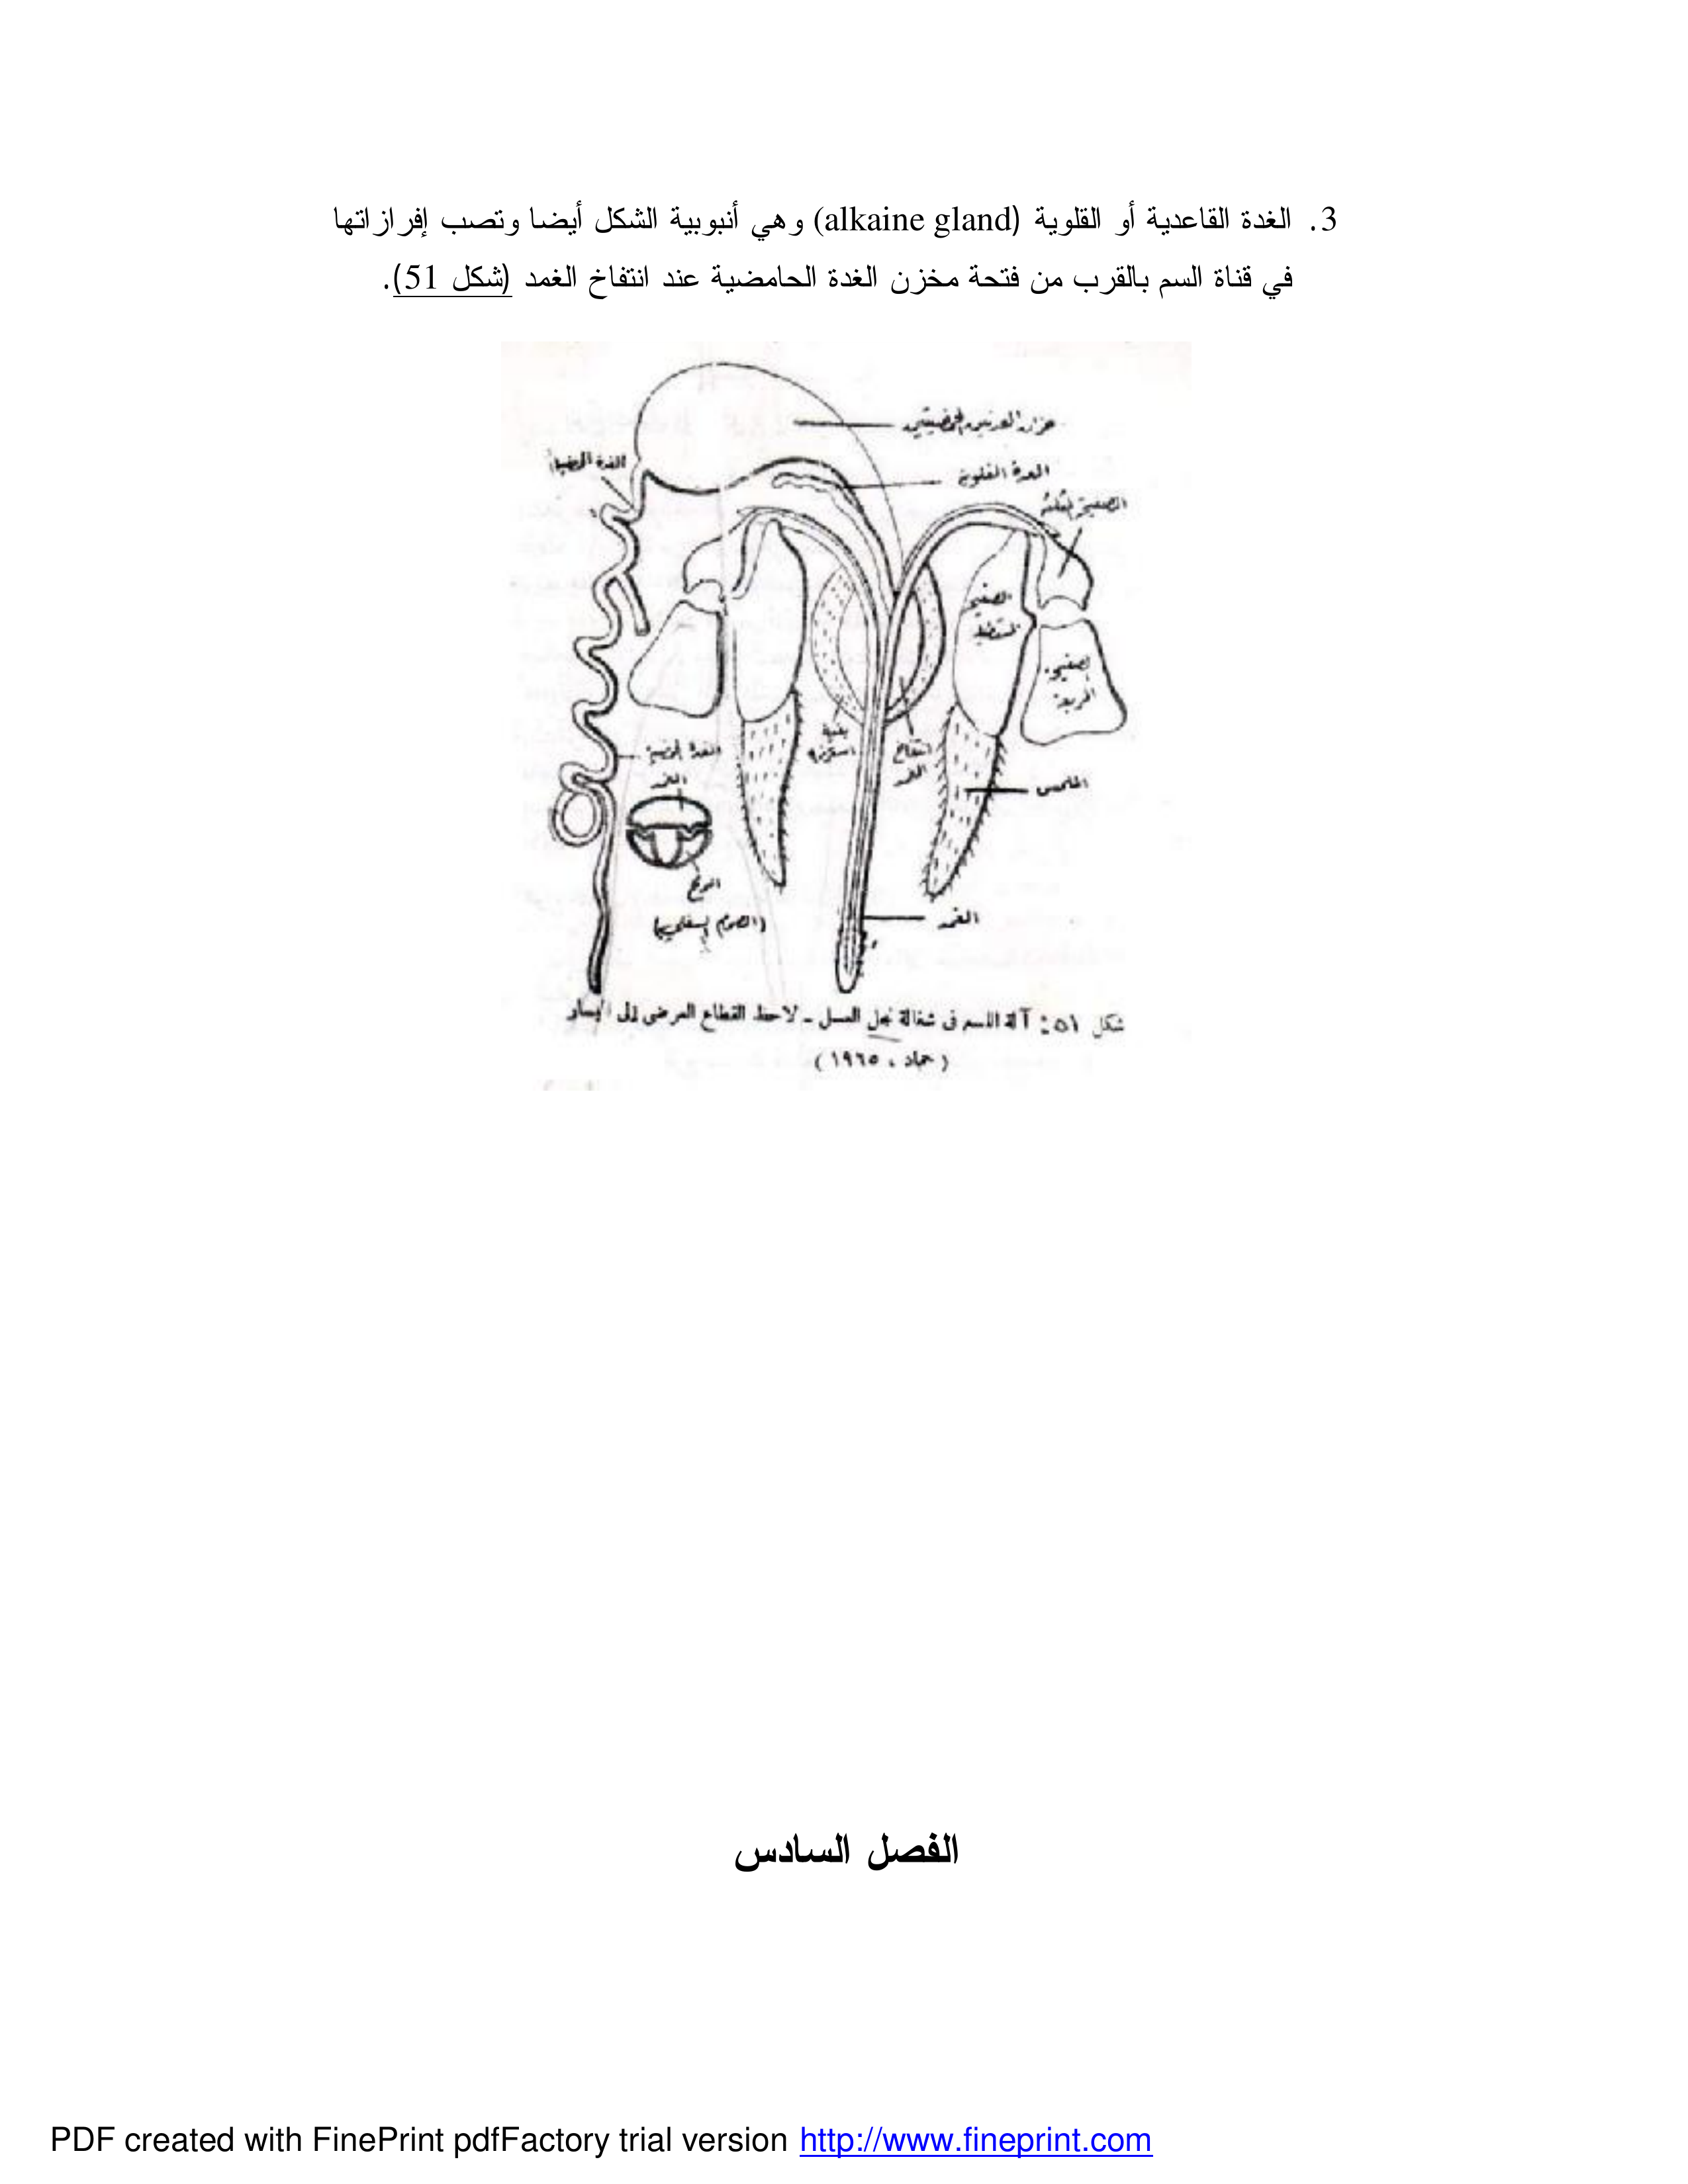 3. الغدة القاعدية أو القلوية (alkaine gland) وهي أنبوبية الشكل أيضا وتصب إفرازاتها
في قناة السم بالقرب من فتحة مخزن الغدة الحامضية عند انتفاخ الغمد (شكل 51).
الغدة القلوية
انتفاخ
الغمد
الملمس
الغمد
شكل ٥١: آلة اللسع فى شغالة نحل العسل ــ لاحظ القطاع العرضى إلى اليسار
(حماد ، ١٩٦٥)
الفصل السادس
PDF created with FinePrint pdfFactory trial version http://www.fineprint.com